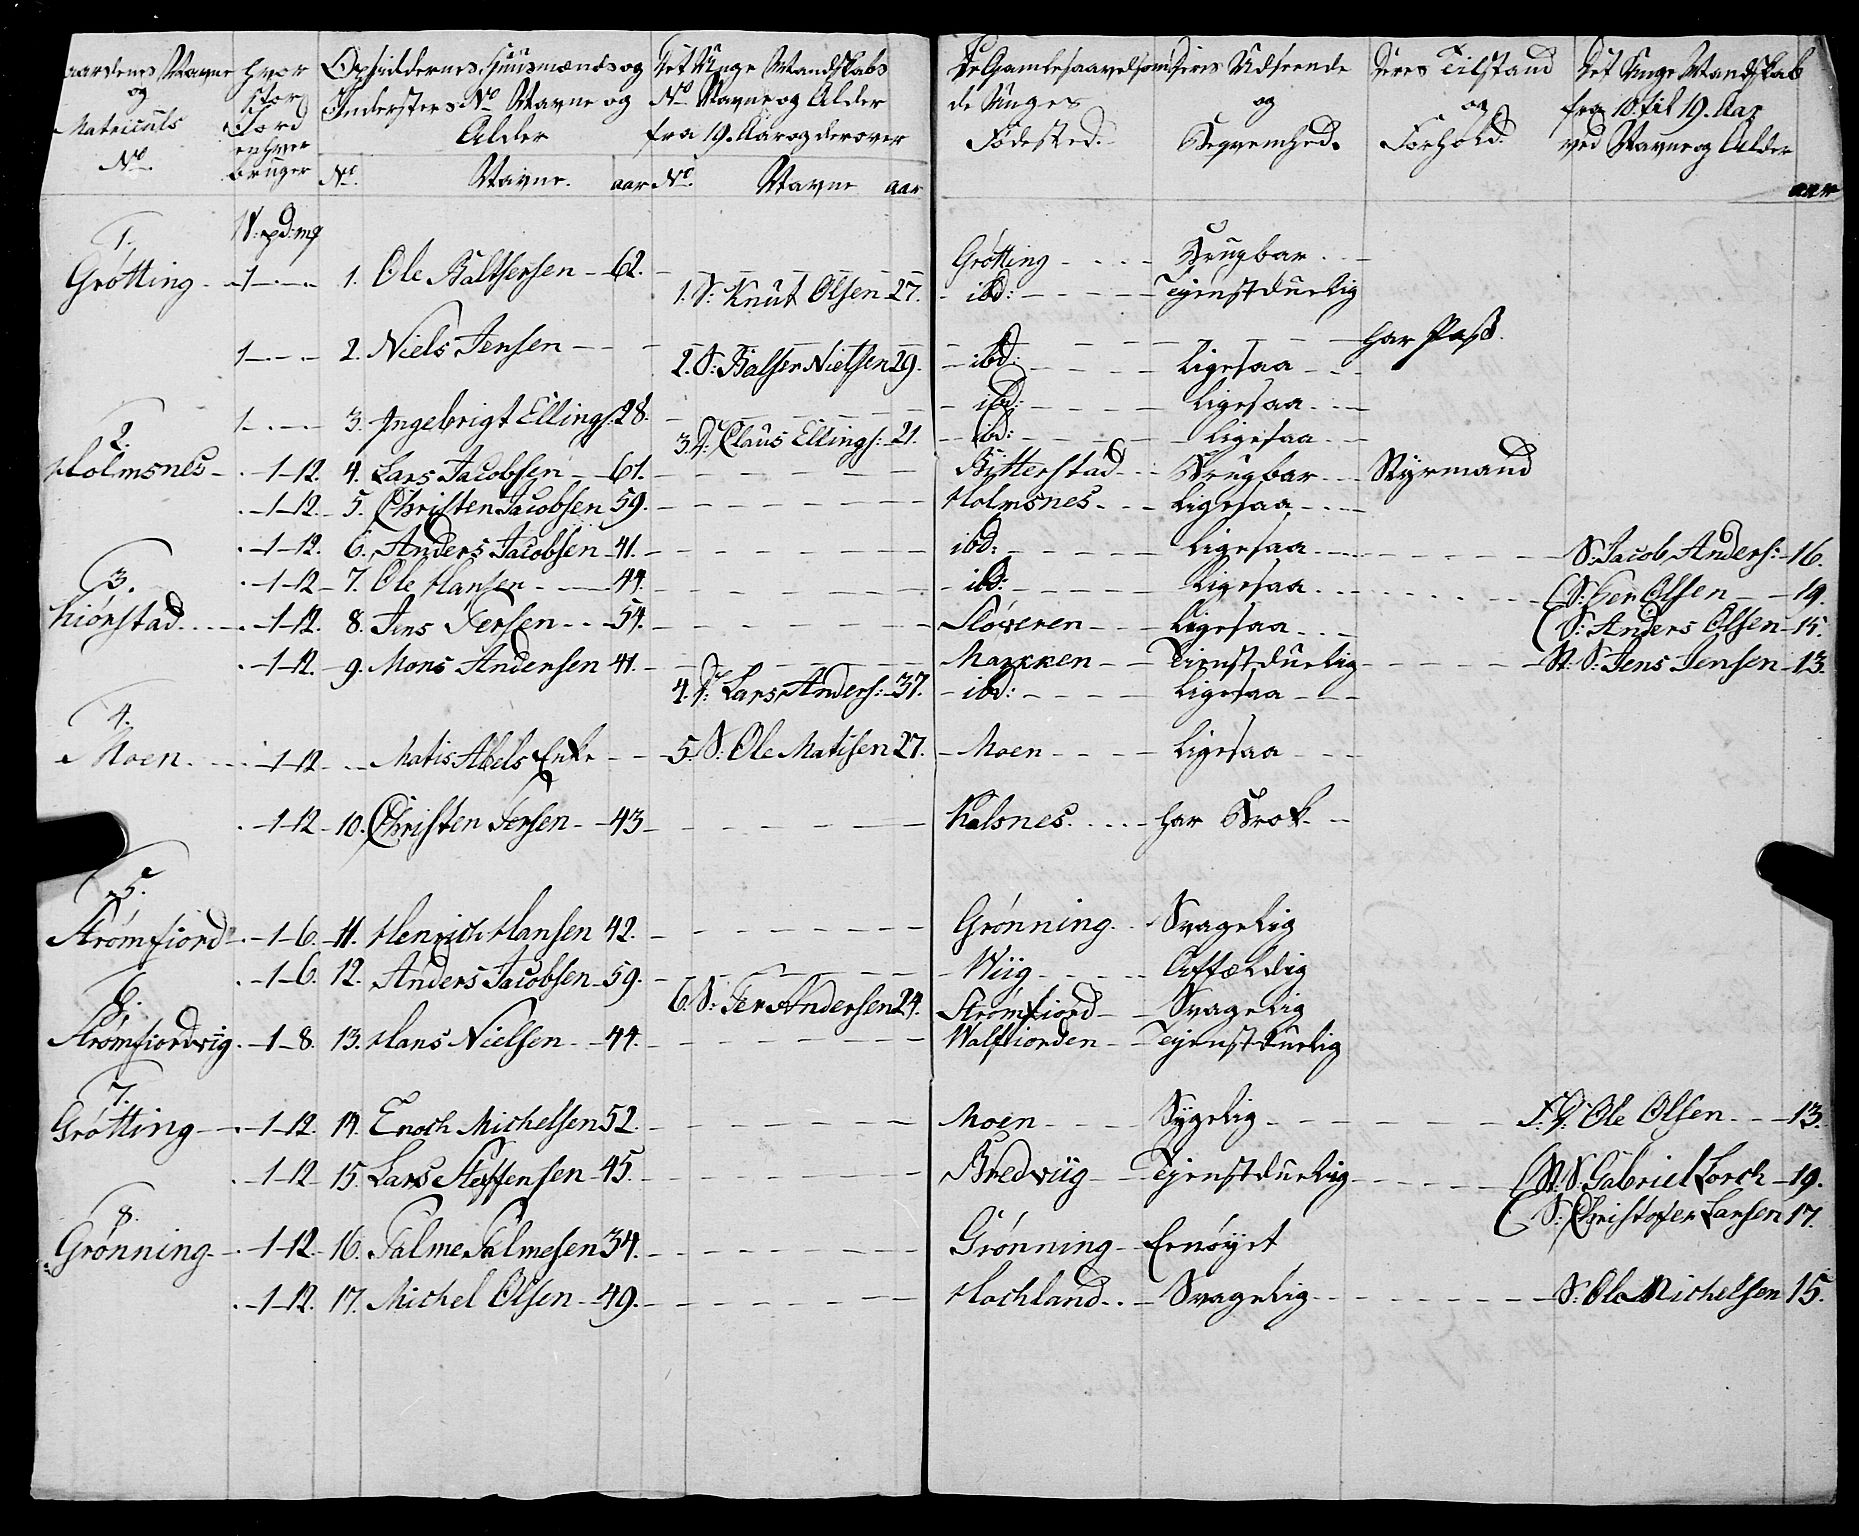 Gaardens Navne og Matriculs No.
hvor stor Jord enhver bruger
Opsiddernes, Huusmænds og Indersters No Navne og Alder
Det Unge Mandskabs No Navne og Alder fra 19. Aar og derover
De Gamle saavelsom de Unges Fødested.
Deres Udseende og Beqvemhed.
Deres Tilstand og Forhold.
Det Unge Mandskab fra 10. til 19. Aar ved Navne og Alder
No. Navne. aar No. Navne aar aar
W: pd: mk
1. Grøtting - 1 - 1. Ole Baltsersen - 62. Grøtting - Brugbar
1. S: Knut Olsen 27. - ibd: - Tjenstduelig
1 - 2. Niels Jensen - har Pass.
2. S: Balser Nielsen 29. - ibd: - Ligesaa
1 - 3. Ingebrigt Ellings: 28. - ibd: - Ligesaa
3. D: Claus Ellings: 21. - ibd: - Ligesaa
2. Holmsnes - 1-12. 4. Lars Jacobsen - 61. Bitterstad - Brugbar - Styrmand
1-12. 5. Christen Jacobsen 59. Holmsnes - Ligesaa
1-12. 6. Anders Jacobsen 41. ibd: - Ligesaa - S: Jacob Anders: 16.
3. Kiørstad 1-12 - 7. Ole Hansen - 44. - ibd: - Ligesaa - S: Per Olsen - 19.
S: Anders Olsen - 15.
1-12. 8. Jens Persen - 54. Sløveren - Ligesaa
1-12. 9. Mons Andersen 41. Markken - Tienstduelig - St: S: Jens Jensen - 13.
4. D: Lars Anders: 37. - ibd: - Ligesaa
4. Moen - 1-12 - Matis Abels Enke - 5. S: Ole Matisen 27. - Moen - Ligesaa
1-12 - 10. Christen Persen - 43 - Kalsnes - har Brok
5. Strømfiord - 1-6. 11. Henrich Hansen 42. Grønning - Svagelig
1-6. 12. Anders Jacobsen 59. - Wiig - Affældig
6. S: Per Andersen 24. Strømfiord - Svagelig
6. Strømfiordvig. 1-8. 13. Hans Nielsen - 44. Walfiorden - Tejenstduelig
7. Grøtting - 1-12. 14. Enoch Michelsen 52. Moen - Sygelig - F. S: Ole Olsen - 13.
1-12 15. Lars Steffensen 45. Bredviig - Tejenstduelig - St: S: Gabriel Lorch - 19.
S: Christofer Larsen 17.
8. Grønning - 1-12 - 16. Palme Palmesen 34. Grønning - Ernøyet
1-12. 17. Michel Olsen - 49. Hochland - Svagelig - S: Ole Michelsen 15.